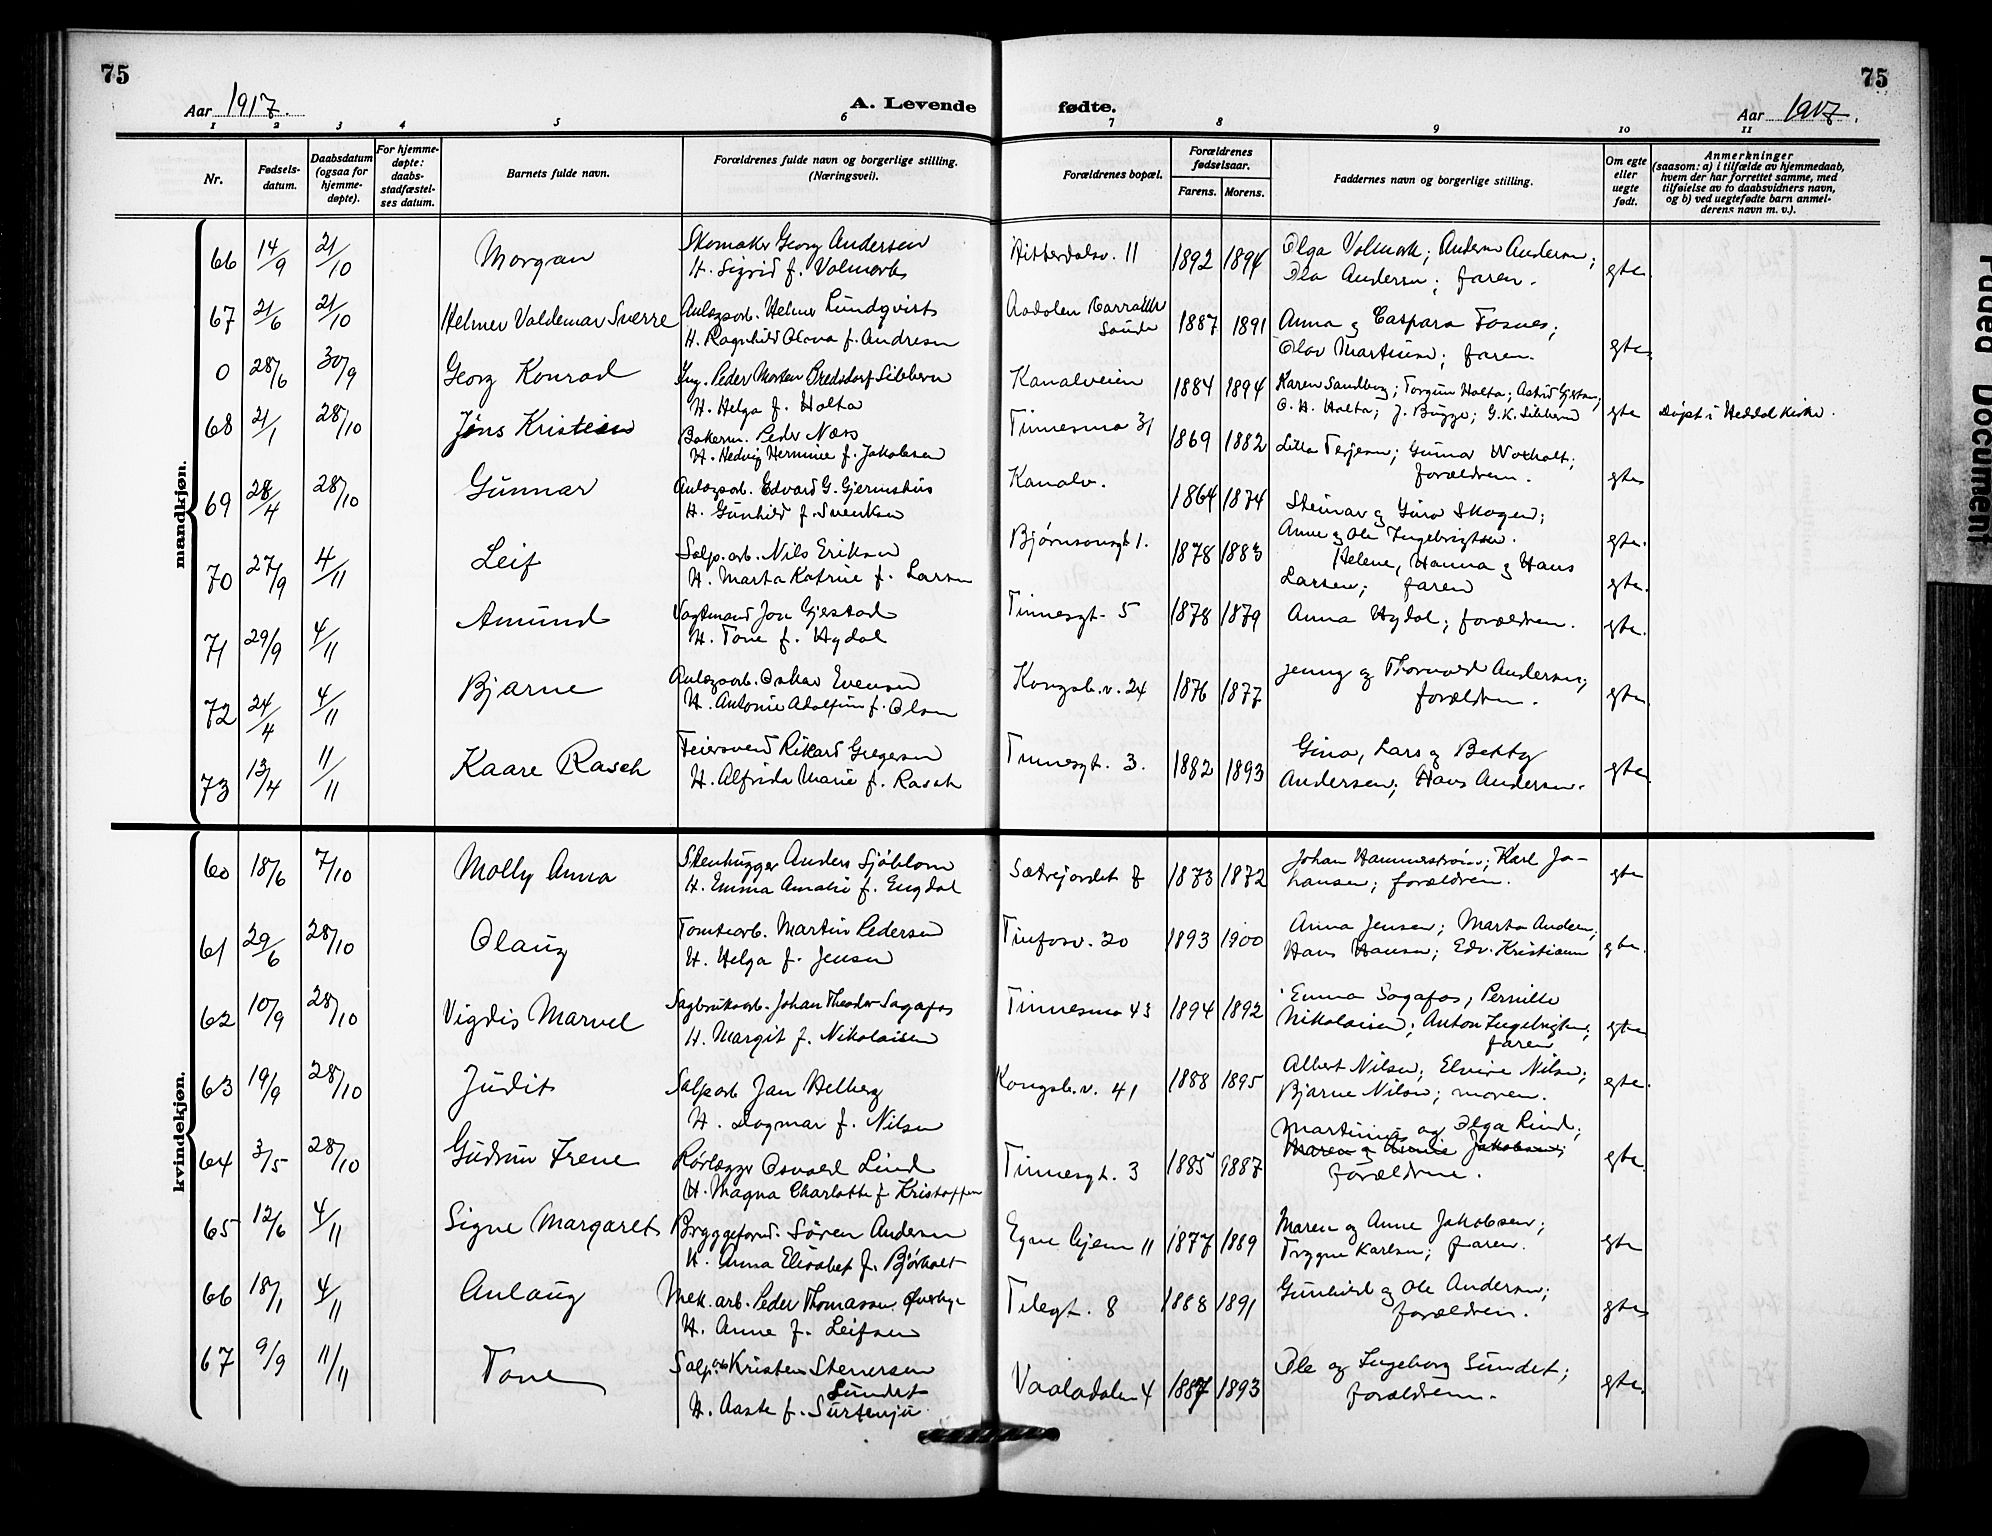 75
75
Aar 1917.
A. Levende fødte.
Aar 1917.
1 2 3 4 5 6 7 8 9 10 11
Nr.
Fødsels-
datum.
Daabsdatum
(ogsaa for
hjemme-
døpte).
For hjemme-
døpte:
daabs-
stadfæstel-
ses datum.
Barnets fulde navn.
Forældrenes fulde navn og borgerlige stilling.
(Næringsvei).
Forældrenes bopæl.
Forældrenes
fødselsaar.
Farens. Morens.
Faddernes navn og borgerlige stilling.
Om egte
eller
uegte
født.
Anmerkninger
(saasom: a) i tilfælde av hjemmedaab,
hvem der har forrettet samme, med
tilføielse av to daabsvidners navn,
og b) ved uegtefødte barn anmel-
derens navn m. v.).
mandkjøn.
66 14/9 21/10 Morgan Skomaker Georg Andersen Hitterdalsv. 11 1892 1894 Olga Volmark; Anders Andersen; egte.
H. Sigrid f. Volmark Ola Andersen; faren.
67 21/6 21/10 Helmer Valdemar Sverre Anlægsarb. Helmer Lundqvist Aadalen 1887 1891 Anna og Caspara Fosnes; egte
H. Ragnhild Olava f. Andresen Olav Martinsen; faren.
0 28/6 30/9 Georg Konrad Ing. Peder Morten Bredsdorf Sibbern Kanalveien 1884 1894 Karen Sandberg; Torgun Holta; Astrid
H. Helga f. Holta O. H. Holta; J. Bugge; G. K. Sibbern egte Døpt i Heddal kirke.
68 21/1 28/10 Jens Kristian Bakerm. Peder Næss Tinnesmo 31 1869 1882 Terjesen; Gunnar egte
H. Hedvig Hermine f. Jakobsen forældrene.
69 28/4 28/10 Gunnar Anlægsarb. Edvard G. Gjernshus Kanalv. 1864 1874 Steinar og Gina Skogen; egte.
H. Gunhild f. Svenksen Anne og Ole Ingebrigtsen.
70 27/9 4/11 Leif Salp. arb. Nils Eriksen Bjørnsonsgt 1. 1878 1883 Helene, Hanna og Hans egte.
H. Marta Katrine f. Larsen Larsen; faren
71 29/9 4/11 Amund Vagtmand Jon Gjestad Tinnesgt. 5 1878 1879 Anna Hydal; forældren. egte.
H. Tone f. Hydal
72 24/4 4/11 Bjarne Anlægsarb. Oskar Evensen Kongsb. v. 24 1876 1877 Jenny og Thorvald Andersen; egte.
H. Antonie Adolfine f. Olsen forældren.
73 13/4 11/11 Kaare Rasch Feiersvend Rikard Gregersen Tinnesgt. 3. 1882 1893 Gina, Lars og Betty egte.
H. Alfrida Marie f. Rasch Andersen; Hans Andersen.
kvindekjøn.
60 18/6 7/10 Molly Anna Stenhugger Anders Sjöblom Sætrejordet 8 1873 1872 Johan Hammerstrøm; Karl Jo- egte
H. Emma Amalie f. Engdal hansen; forældren.
61 29/6 28/10 Olaug Tomtearb. Martin Pedersen Tinfosv. 20 1893 1900 Anna Jensen; Marta Andersen; egte.
H. Helga f. Jensen Hans Hansen; Edv. Kristiansen
62 10/9 28/10 Vigdis Marvel Sagbruksarb. Johan Theodor Sagafos Tinnesmo 43 1894 1892 Emma Sagafos, Pernille egte
H. Margit f. Nikolaisen Nikolaisen; Anton Ingebrigtsen;
faren
63 19/9 28/10 Judit Salp arb Jan Helberg Kongsb. v. 41 1888 1895 Albert Nilsen; Elvira Nilsen; egte.
H. Dagmar f. Nilsen Bjarne Nilsen; moren.
64 3/5 28/10 Gudrun Irene Rørlægger Osvald Lind Tinnesgt. 3 1885 1887 Martinius og Olga Lind; egte.
H. Magna Charlotte f Kristoffersen Maren og Annie Jakobsen;
forældrene.
65 12/6 4/11 Signe Margaret Bryggeform. Søren Andersen Egne hjem 11 1877 1889 Maren og Anne Jakobsen; egte
H. Anna Elisabet f. Bjørholt Trygve Karlsen; faren.
66 18/1 4/11 Anlaug Mek. arb. Peder Thomassen Øverbye Telegt. 8 1888 1891 Gunhild og Ole Andersen; egte
H. Anne f. Leifsen forældren.
67 9/9 11/11 Tone Salp. arb Kristen Stenersen Vaaladalen 4 1887 1893 Ole og Ingeborg Sundet; egte.
Sundet forældrene.
H. Aaste f. Surtenju
Faded Document